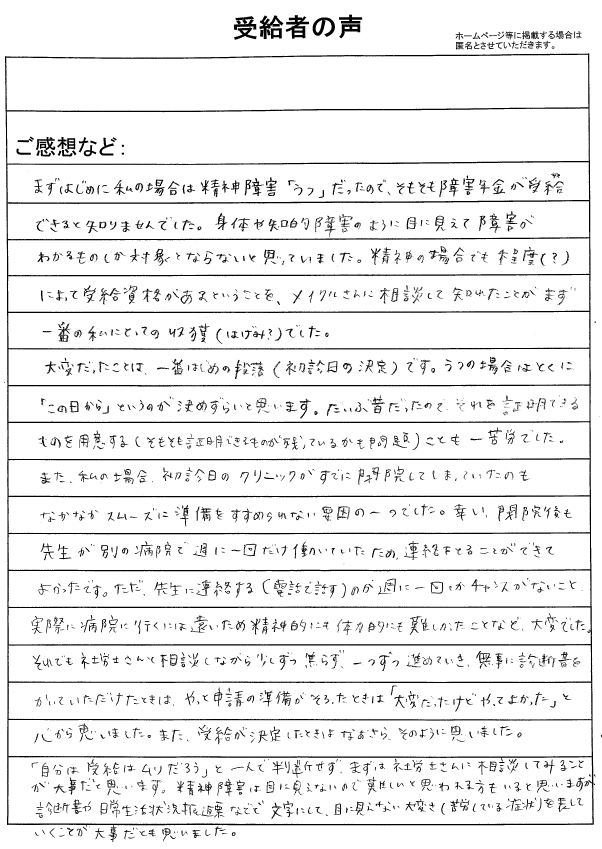 受給者の声
ホームページ等に掲載する場合は
匿名とさせていただきます。
ご感想など：
まずはじめに私の場合は精神障害「うつ」だったので、そもそも障害年金が受給
できると知りませんでした。身体や知的障害のように目に見えて障害が
わかるものしか対象とならないと思っていました。精神の場合でも程度(?)
によって受給資格があるということを、メイクルさんに相談して知れたことがまず
一番の私にとっての収獲(はげみ?)でした。
大変だったことは、一番はじめの段落(初診日の決定)です。うつの場合はとくに
「この日から」というのが決めずらいと思います。だいぶ昔だったので、それを証明できる
ものを用意する(そもそも証明できるものが残っているかも問題)ことも一苦労でした。
また、私の場合、初診日のクリニックがすでに閉院してしまっていたのも
なかなかスムーズに準備をすすめられない要因の一つでした。幸い、閉院後も
先生が別の病院で週に一回だけ働いていたため、連絡をとることができて
よかったです。ただ、先生に連絡する(電話で話す)のが週に一回しかチャンスがないこと、
実際に病院に行くには遠いため精神的にも体力的にも難しかったことなど、大変でした。
それでも社労士さんと相談しながら少しずつ焦らず、一つずつ進めていき、無事に診断書を
かいていただけたときは、やっと申請の準備がそろったときは「大変だったけどやってよかった」と
心から思いました。また、受給が決定したときはなおさら、そのように思いました。
「自分は受給はムリだろう」と一人で判断せず、まずは社労士さんに相談してみること
が大事だと思います。精神障害は目に見えないので難しいと思われる方もいると思いますが
診断書や日常生活状況報告書などで文字にして、目に見えない大変さ(苦労している症状)を表して
いくことが大事だとも思いました。